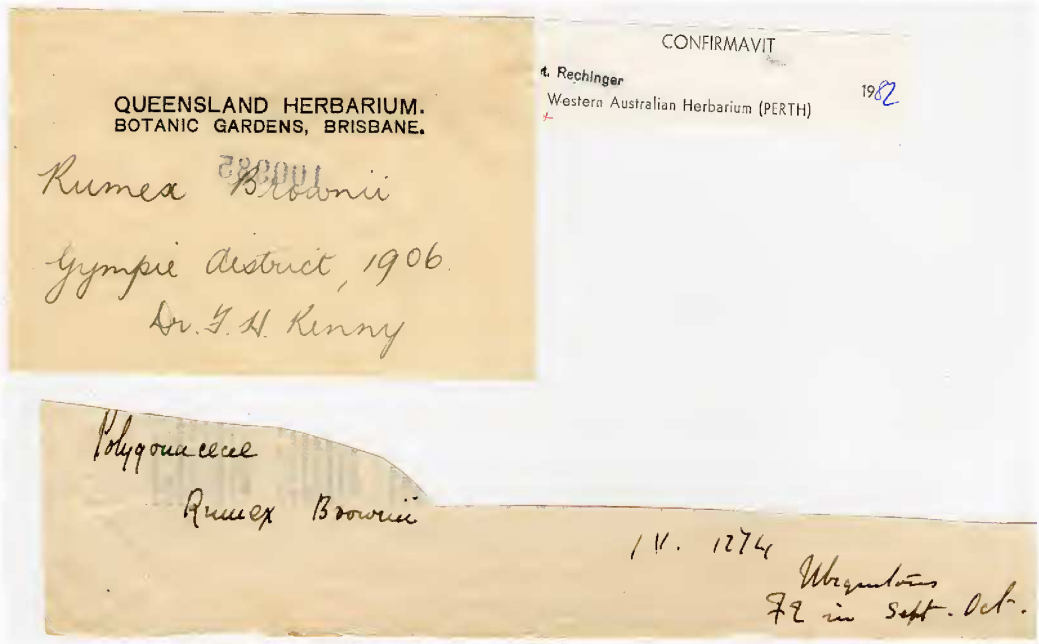 QUEENSLAND HERBARIUM.
BOTANIC GARDENS, BRISBANE.
Rumex Brownii
Gympie district, 1906.
Dr. F. H. Kenny
CONFIRMAVIT
t. Rechinger
1982
Western Australian Herbarium (PERTH)
Polygonaceae
Rumex Brownii
IV. 1274
Ubiquitous
Fl in Sept. Oct.